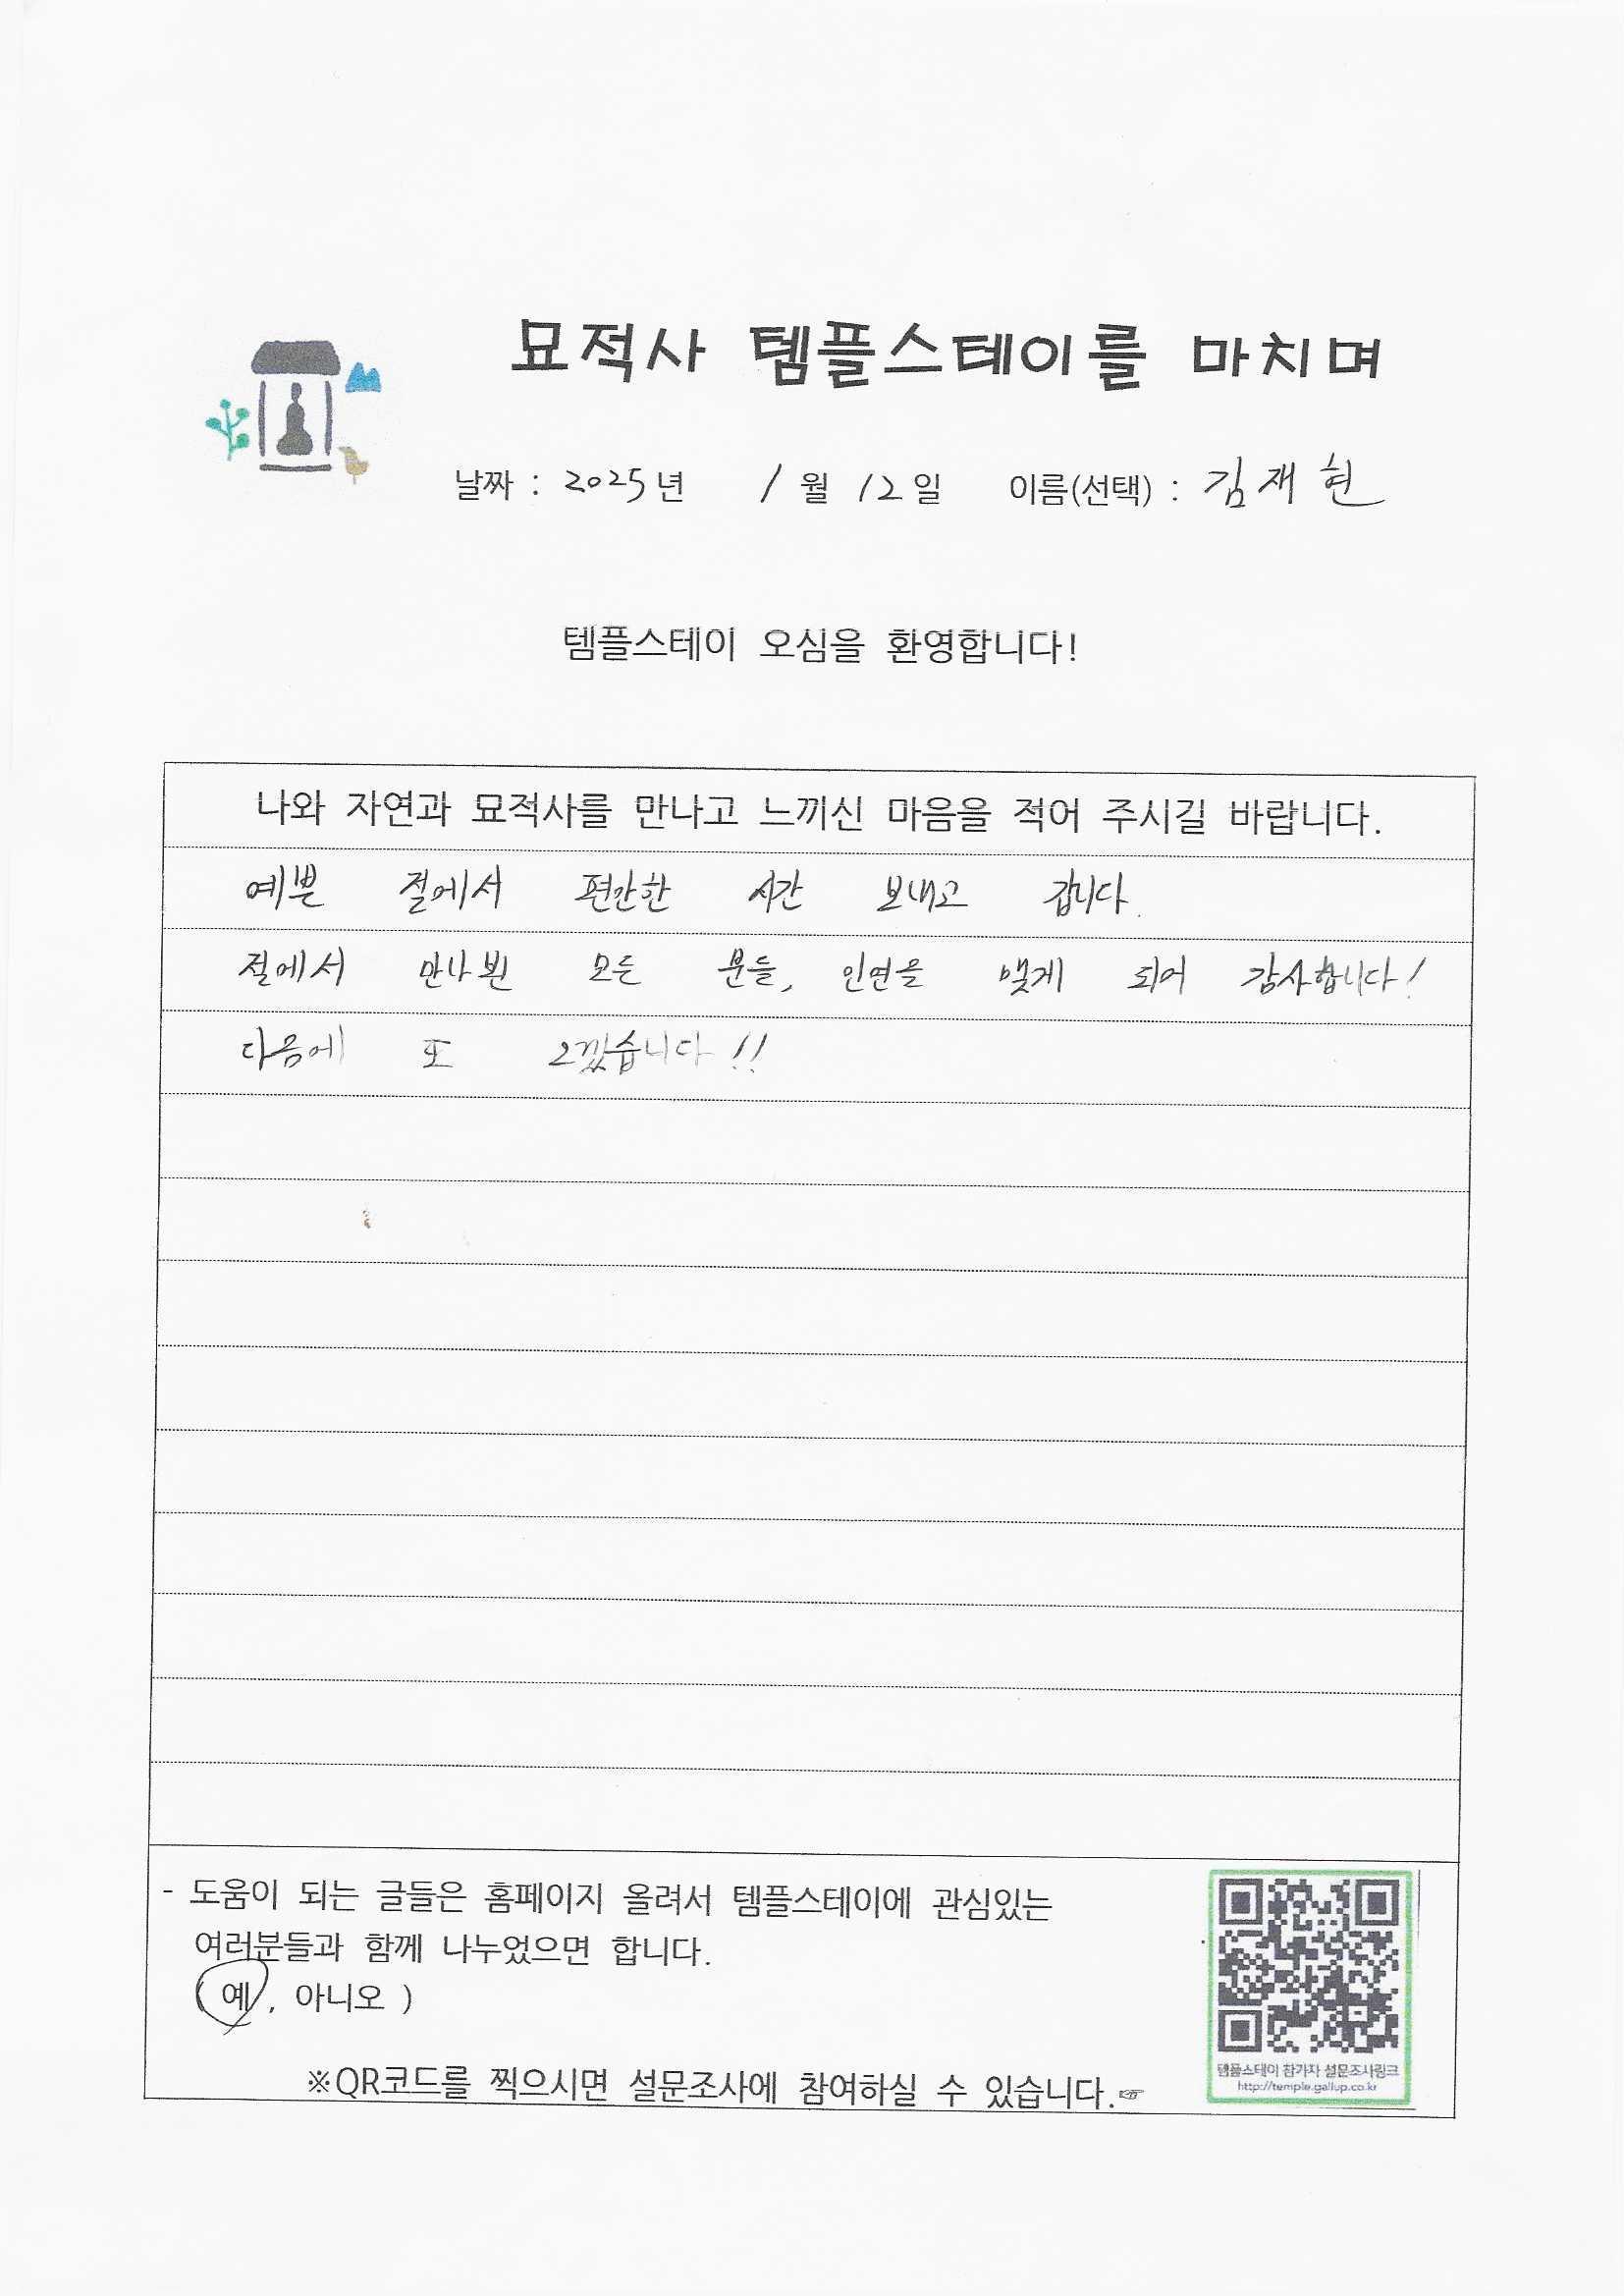 묘적사 템플스테이를 마치며
날짜 : 2025년 1월 12일 이름(선택) : 김재현
템플스테이 오심을 환영합니다!
나와 자연과 묘적사를 만나고 느끼신 마음을 적어 주시길 바랍니다.
예쁜 절에서 편안한 시간 보내고 갑니다.
절에서 만나뵌 모든 분들, 인연을 맺게 되어 감사합니다!
다음에 또 오겠습니다!!
- 도움이 되는 글들은 홈페이지 올려서 템플스테이에 관심있는
여러분들과 함께 나누었으면 합니다.
( 예, 아니오 )
※QR코드를 찍으시면 설문조사에 참여하실 수 있습니다.☞
템플스테이 참가자 설문조사링크
http://temple.gallup.co.kr